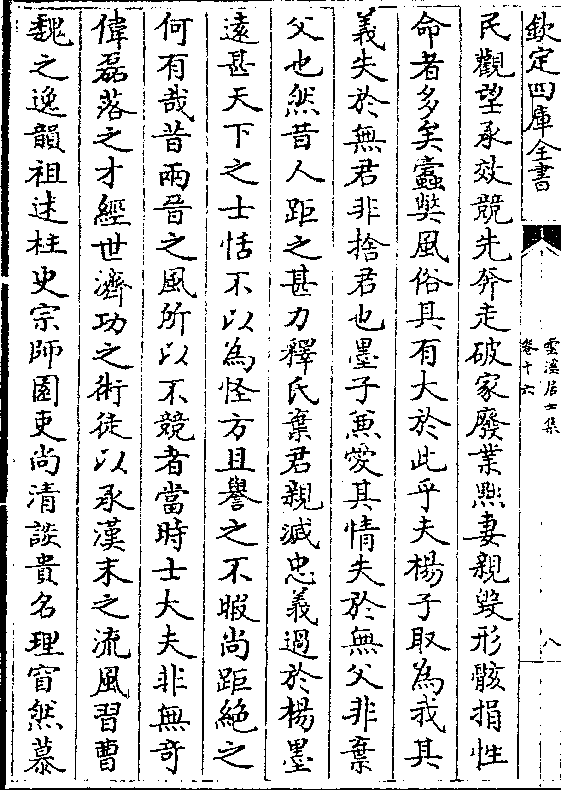 欽定四庫全書
雲溪居士集
卷十六
八
民觀望承效競先奔走破家廢業㸃妻親毀形骸捐性
命者多矣蠧獘風俗其有大於此乎夫楊子取為我其
義失於無君非捨君也墨子兼愛其情失於無父非棄
父也然昔人距之甚力釋氏棄君親滅忠義過於楊墨
遠甚天下之士恬不以為怪方且譽之不暇尚距絶之
何有哉昔兩晉之風所以不競者當時士大夫非無竒
偉磊落之才經世濟功之術徒以承漢末之流風習曹
魏之逸韻祖述柱史宗師園吏尚清談貴名理窅然慕